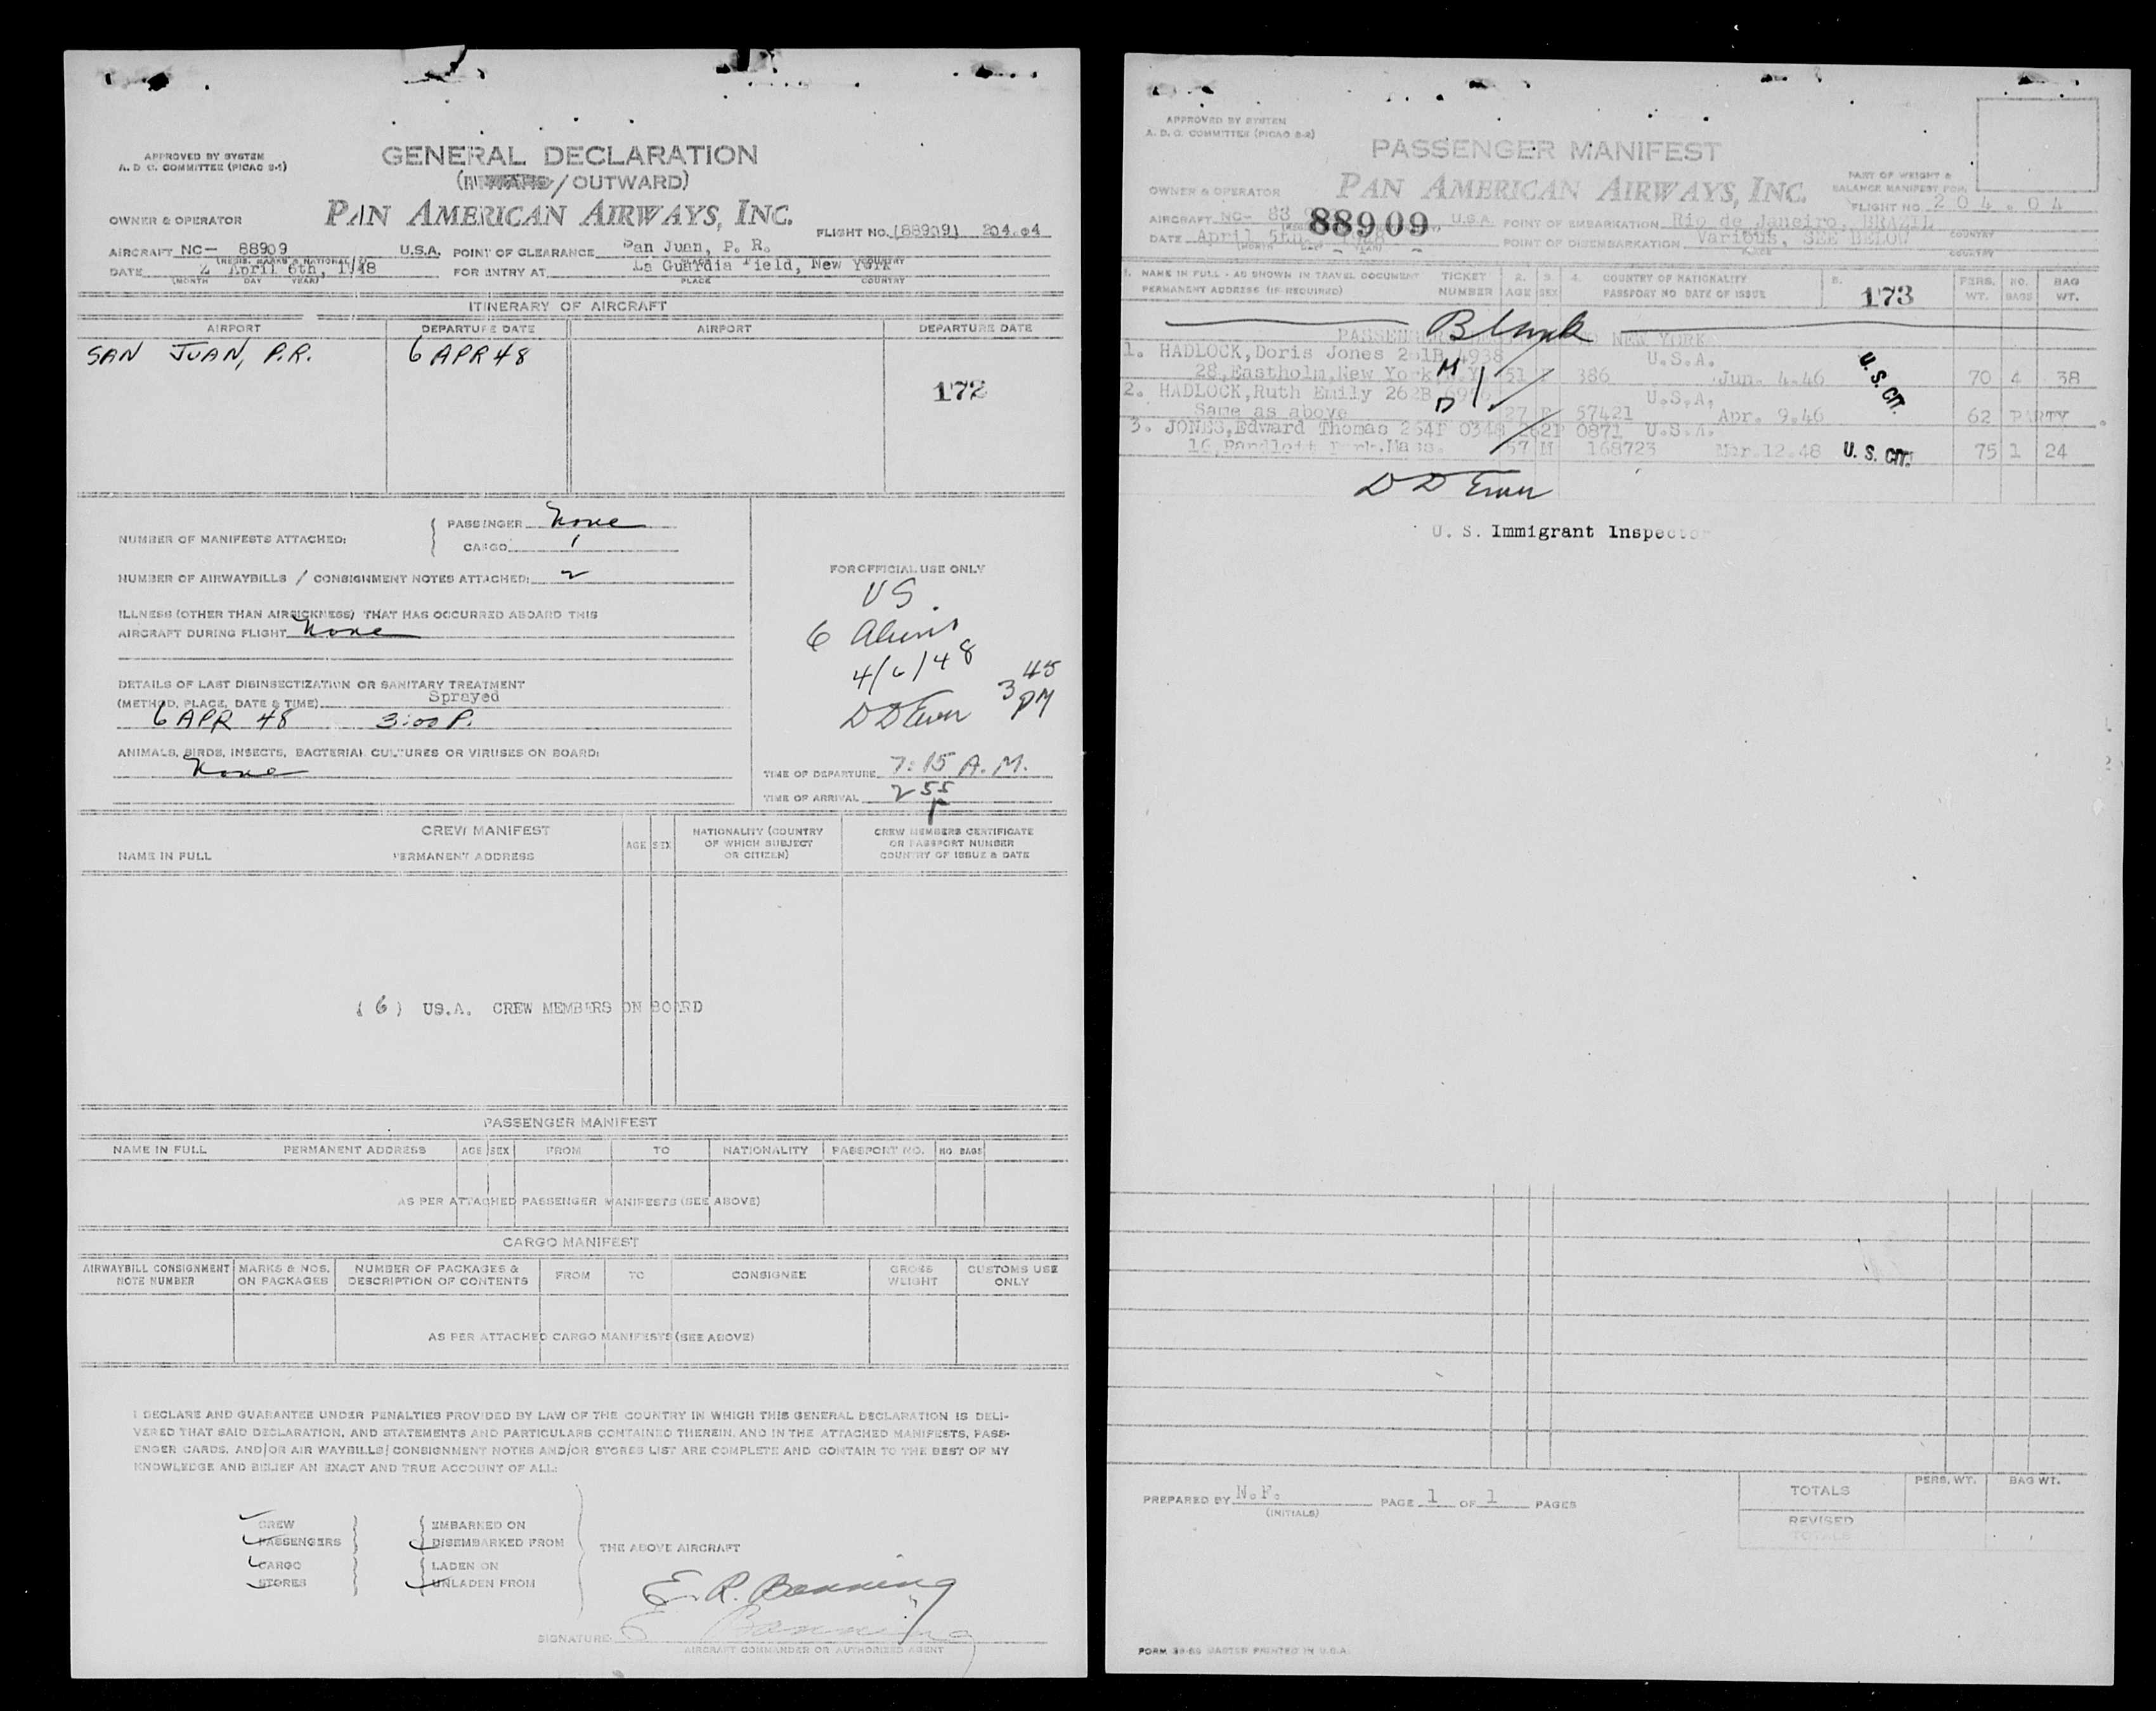 APPROVED BY SYSTEM
A. D. C. COMMITTEE (PICAO 2-1)
GENERAL DECLARATION
(/ OUTWARD)
PAN AMERICAN AIRWAYS, INC.
OWNER & OPERATOR
FLIGHT NO. (88909) 204.04
AIRCRAFT NC- 88909 U.S.A. POINT OF CLEARANCE San Juan, P. R.
(REGIS. MARKS & NATIONALITY) PLACE COUNTRY
DATE April 6th, 1948 FOR ENTRY AT La Guardia Field, New York
(MONTH DAY YEAR) PLACE COUNTRY
ITINERARY OF AIRCRAFT
AIRPORT DEPARTURE DATE AIRPORT DEPARTURE DATE
SAN JUAN, P.R. 6 APR 48
172
NUMBER OF MANIFESTS ATTACHED: PASSENGER None
CARGO 1
NUMBER OF AIRWAYBILLS / CONSIGNMENT NOTES ATTACHED: 2
ILLNESS (OTHER THAN AIRSICKNESS) THAT HAS OCCURRED ABOARD THIS
AIRCRAFT DURING FLIGHT None
DETAILS OF LAST DISINSECTIZATION OR SANITARY TREATMENT
(METHOD, PLACE, DATE & TIME) Sprayed
6 APR 48 3:00 P.
ANIMALS, BIRDS, INSECTS, BACTERIAL CULTURES OR VIRUSES ON BOARD:
None
FOR OFFICIAL USE ONLY
US
6
4/6/48
3 45 PM
TIME OF DEPARTURE 7:15 A.M.
TIME OF ARRIVAL 2 55 P
CREW MANIFEST
NAME IN FULL PERMANENT ADDRESS AGE SEX
NATIONALITY (COUNTRY
OF WHICH SUBJECT
OR CITIZEN)
CREW MEMBERS CERTIFICATE
OR PASSPORT NUMBER
COUNTRY OF ISSUE & DATE
( 6 ) US.A. CREW MEMBERS ON BOARD
PASSENGER MANIFEST
NAME IN FULL PERMANENT ADDRESS AGE SEX FROM TO NATIONALITY PASSPORT NO. NO. BAGS
AS PER ATTACHED PASSENGER MANIFESTS (SEE ABOVE)
CARGO MANIFEST
AIRWAYBILL CONSIGNMENT
NOTE NUMBER
MARKS & NOS.
ON PACKAGES
NUMBER OF PACKAGES &
DESCRIPTION OF CONTENTS
FROM TO CONSIGNEE
GROSS
WEIGHT
CUSTOMS USE
ONLY
AS PER ATTACHED CARGO MANIFESTS (SEE ABOVE)
I DECLARE AND GUARANTEE UNDER PENALTIES PROVIDED BY LAW OF THE COUNTRY IN WHICH THIS GENERAL DECLARATION IS DELI-
VERED THAT SAID DECLARATION, AND STATEMENTS AND PARTICULARS CONTAINED THEREIN, AND IN THE ATTACHED MANIFESTS, PASS-
ENGER CARDS, AND/OR AIR WAYBILLS/CONSIGNMENT NOTES AND/OR STORES LIST ARE COMPLETE AND CONTAIN TO THE BEST OF MY
KNOWLEDGE AND BELIEF AN EXACT AND TRUE ACCOUNT OF ALL:
CREW EMBARKED ON
PASSENGERS DISEMBARKED FROM
THE ABOVE AIRCRAFT
CARGO LADEN ON
STORES UNLADEN FROM
E. R. Banning
SIGNATURE: E Banning
AIRCRAFT COMMANDER OR AUTHORIZED AGENT
APPROVED BY SYSTEM
A. D. C. COMMITTEE (PICAO 2-2)
PASSENGER MANIFEST
PAN AMERICAN AIRWAYS, INC.
PART OF WEIGHT &
BALANCE MANIFEST FOR
OWNER & OPERATOR
FLIGHT NO. 204.04
AIRCRAFT NC- 88 88909 U.S.A. POINT OF EMBARKATION Rio de Janeiro, BRAZIL
COUNTRY
DATE April 5th, 1948 POINT OF DISEMBARKATION Various, SEE BELOW
PLACE COUNTRY
1. NAME IN FULL - AS SHOWN IN TRAVEL DOCUMENT
PERMANENT ADDRESS (IF REQUIRED)
TICKET
NUMBER
2.
AGE
3.
SEX
4. COUNTRY OF NATIONALITY
PASSPORT NO DATE OF ISSUE
5.
173
PERS.
WT.
NO.
BAGS
BAG
WT.
Blank
PASSENGERS NEW YORK
1. HADLOCK, Doris Jones 261B 4938 U.S.A.
28, Eastholm, New York, N.Y. 51 F 386 Jun. 4.46 U. S. CIT. 70 4 38
M
2. HADLOCK, Ruth Emily 262B U.S.A.
Same as above 27 F 57421 Apr. 9.46 62 PARTY
D
3. JONES, Edward Thomas 254T 0348 262T 0871 U.S.A.
57 M 168723 Mar. 12.48 U. S. CIT. 75 1 24
U. S. Immigrant Inspector
PREPARED BY N.F. PAGE 1 OF 1 PAGES
(INITIALS)
PERS. WT. BAG WT.
TOTALS
REVISED
TOTALS
FORM MASTER PRINTED IN U.S.A.